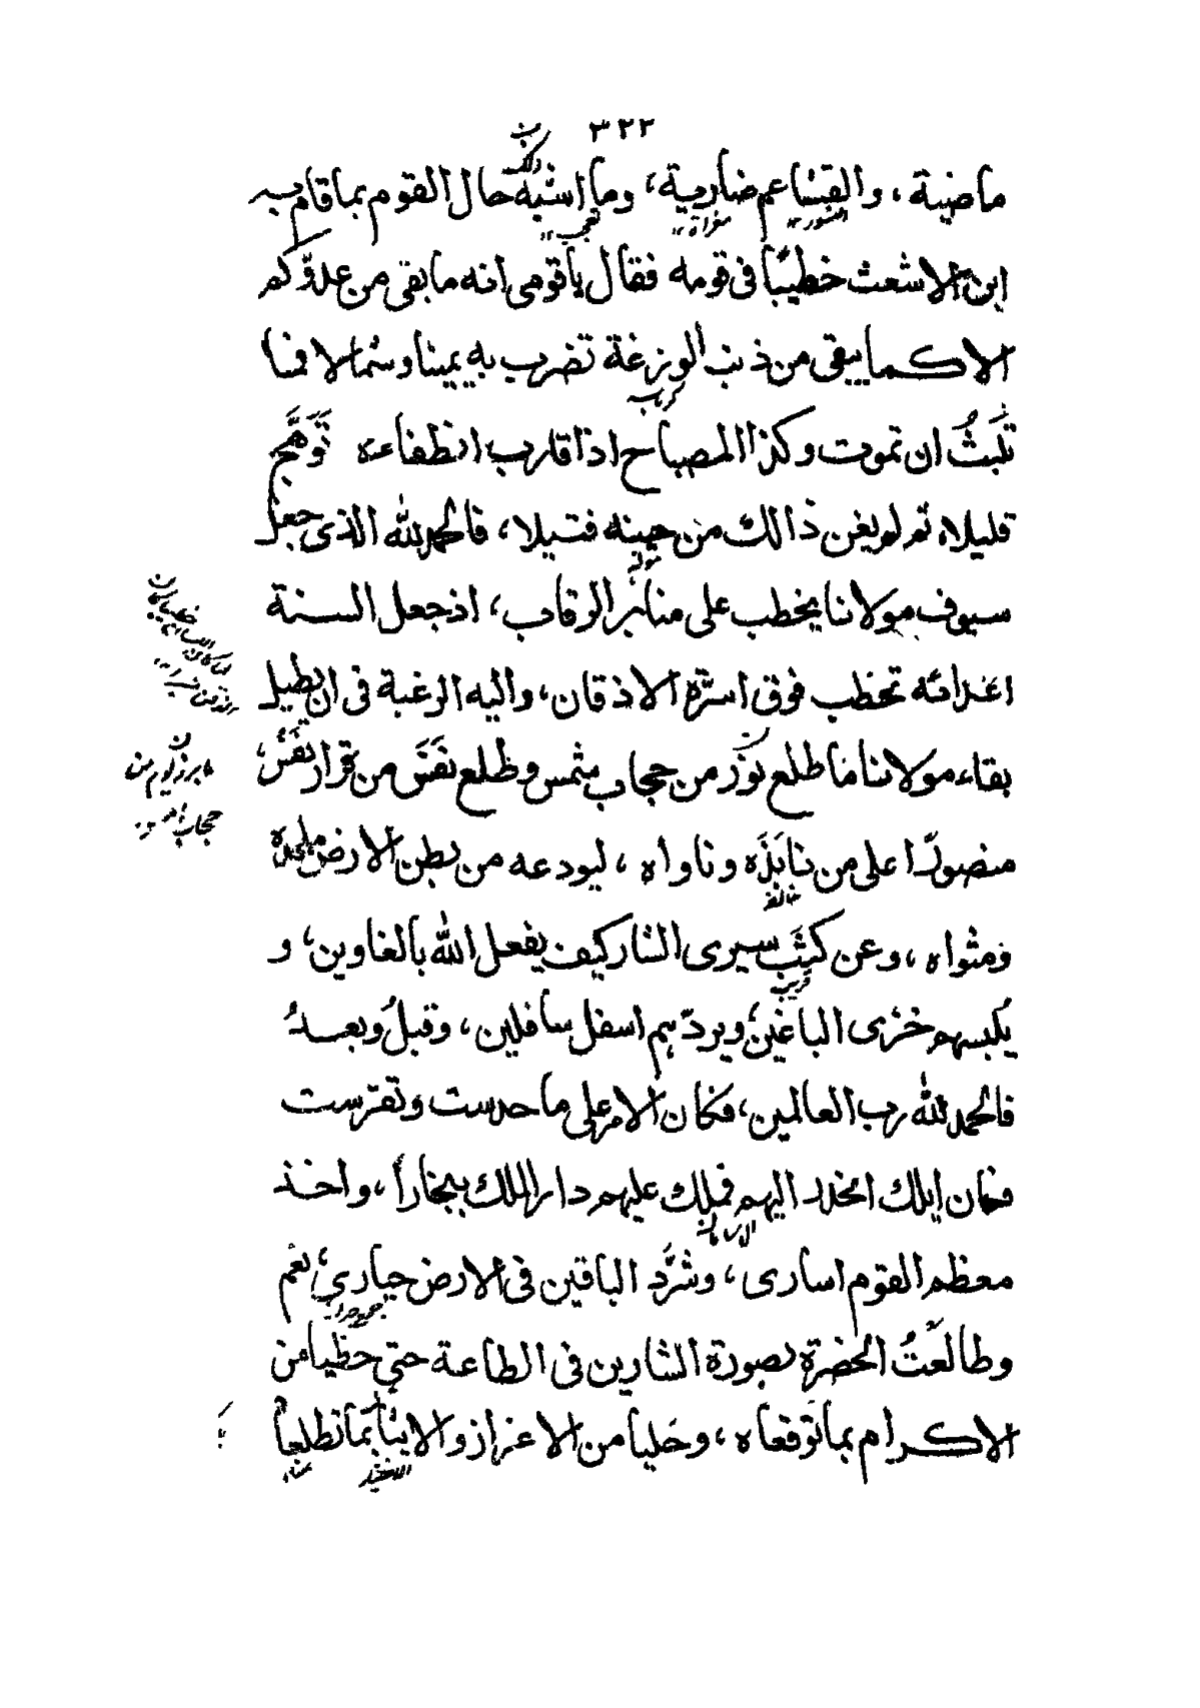 ٣٢٢
ماضية، والقشاعم ضارية، وما اشبه حال القوم بما قام به
ابن الاشعث خطيبًا فى قومه فقال ياقومى انه ما بقى من عدوّكم
الا كما يبقى من ذنب الوزغة تضرب به يمينا وشمالا فما
تلبَثُ ان تموت وكذا المصباح اذا قارب انطفاءه تَوَهَّج
قليلاه ثم لم يغن ذالك من حينه فتيلا، فالحمد لله الذى جعل
سيوف مولانا يخطب على منابر الرقاب، اذ جعل السنة
اعدائه تخطب فوق اسرّة الاذقان، واليه الرغبة فى ان يطيل
بقاء مولانا ما طلع نور من حجاب شمس وطلع نفَسَ من قرار نفَس،
منصورًا على من نابَذَه وناواه، ليودعه من بطن الارض ملحده
ومثواه، وعن كثَب سيرى الشار كيف يفعل الله بالغاوين، و
يكبسهم خزى الباغين، ويردّهم اسفل سافلين، وقبلُ وبعدُ
فالحمد لله رب العالمين، فكان الامر على ما حدست وتفرّست
فكان ايلك انحدر اليهم فملك عليهم دار الملك ببخارا، واخذ
معظم القوم اسارى، وشرَّد الباقين فى الارض حيارى، نعم
وطالعْتُ الحضرة بصورة الشارين فى الطاعة حتى حظيا من
الاكرام بما توقعاه، وحليا من الاعزاز والايثار بما تطلعا
قريب